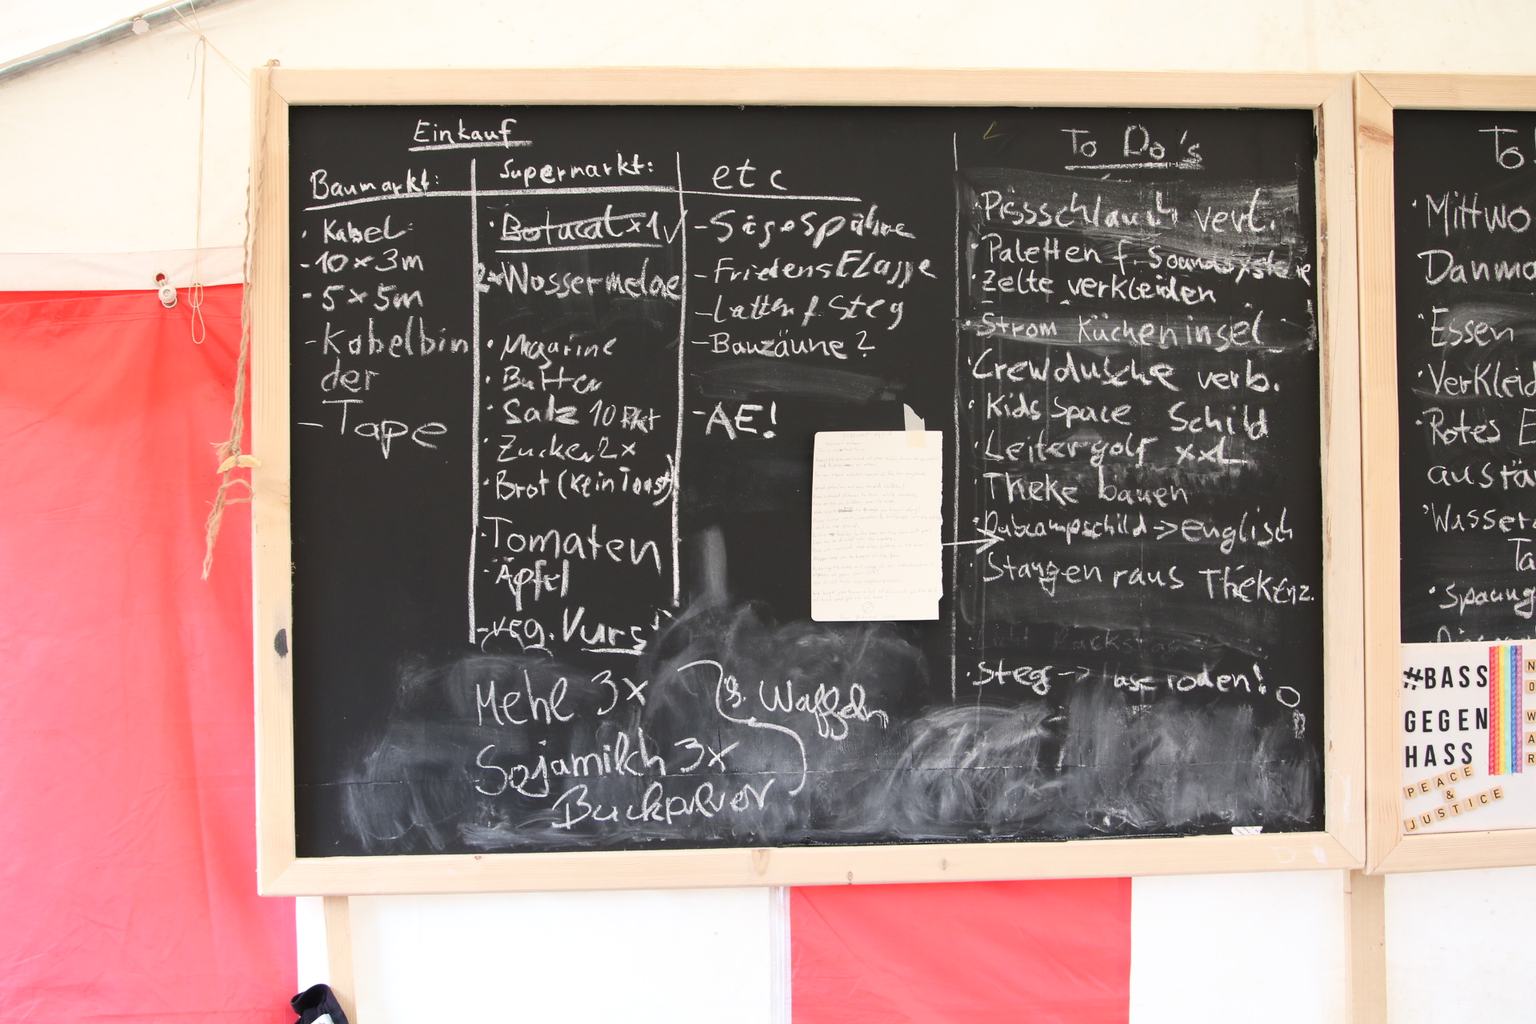 Einkauf
Baumarkt:
· Kabel:
- 10 x 3m
- 5 x 5m
- Kabelbin
der
- Tape
Supermarkt:
2x Wassermelone
· Magarine
· Butter
· Salz 10 Pkt
· Zucker 2x
· Brot (kein Toast)
· Tomaten
· Äpfel
- veg. Wurst
Mehl 3x
Sojamilch 3x
Backpulver
f. Waffeln
etc
- Sägespähne
- Friedensflagge
- Latten f. Steg
- Bauzäune ?
- AE!
To Do's
· Pissschlauch verl.
· Paletten f. Soundsysteme
· Zelte verkleiden
· Strom Kücheninsel
· Crewdusche verb.
· Kids Space Schild
· Leitergolf XXL
· Theke bauen
· Dubcampschild -> englisch
· Stangen raus Thekenz.
· Steg -> roden!
To
· Mittwo
Danma
· Essen
· Verkleid
· Rotes E
austä
· Wasser
Ta
· Spanng
#BASS
GEGEN
HASS
PEACE
&
JUSTICE
NO WAR